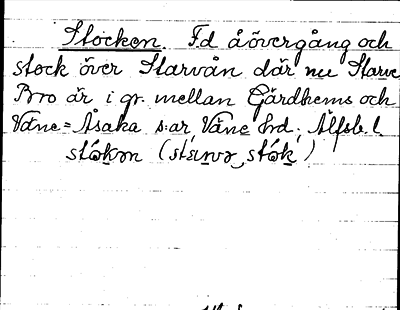 Stocken. F.d åövergång och
stock över Starvån där nu Starve
Bro är i gr. mellan Gärdhems och
Väne=Åsaka s:ar, Väne hd. Älfsb. l.
stókən (